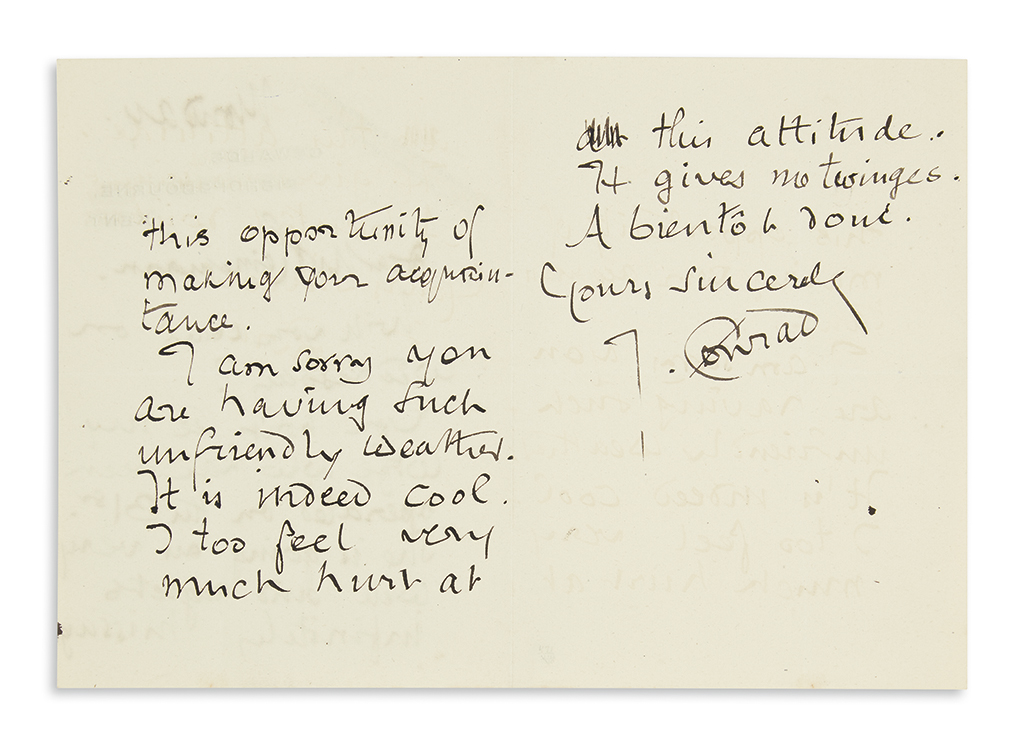 this opportunity of
making your acquain-
tance.
I am sorry you
are having such
unfriendly weather.
It is indeed cool.
I too feel very
much hurt at
this attitude.
It gives me twinges.
A bientôt donc.
Yours sincerely
J. Conrad